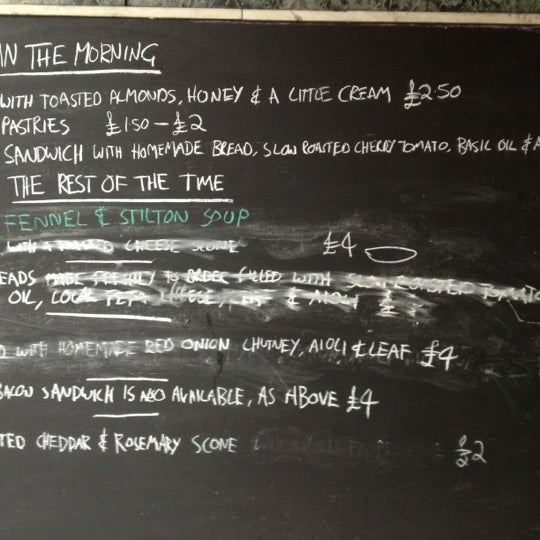 IN THE MORNING
WITH TOASTED ALMONDS, HONEY & A LITTLE CREAM £2.50
PASTRIES £1.50 - £2
SANDWICH WITH HOMEMADE BREAD, SLOW ROASTED CHERRY TOMATO, BASIL OIL & A
THE REST OF THE TIME
FENNEL & STILTON SOUP
WITH A TOASTED CHEESE SCONE £4
EADS MADE FRESHLY TO ORDER FILLED WITH SLOW ROASTED TOMATO
OIL, & AIOLI £
WITH HOMEMADE RED ONION CHUTNEY, AIOLI & LEAF £4
BACON SANDWICH IS ALSO AVAILABLE, AS ABOVE £4
TED CHEDDAR & ROSEMARY SCONE £2